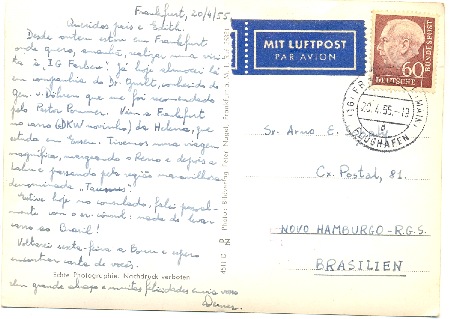 Frankfurt, 20/4/55
Queridos pais e Edith:
Desde ontem estou em Frankfurt
onde quero, amanhã, realizar uma visi-
ta à I.G. Farben! Já hoje almocei lá
em companhia do Dr. conhecido do
Gen. que me foi recomendado
pelo Pastor Pommer. Vim a Frankfurt
no carro (DKW novinho) da Helena, que
estuda em Essen. Tivemos uma viagem
magnífica, margeando o Reno e depois a
Lahn e passando pela região maravilhosa
denominada "Taunus".
Estive hoje no consulado, falei pessoal-
mente com o cônsul: nada de levar
carro ao Brasil!
Voltarei sexta-feira a Bonn e espero
encontrar carta de vocês.
Echte Photographie. Nachdruck verboten
Um grande abraço e muitas felicidades mais uma vez
MIT LUFTPOST
PAR AVION
60
DEUTSCHE
BUNDESPOST
20.4.55.-19
FLUGHAFEN
Sr. Arno E.
Cx. Postal, 81.
NOVO HAMBURGO - R.G.S.
BRASILIEN